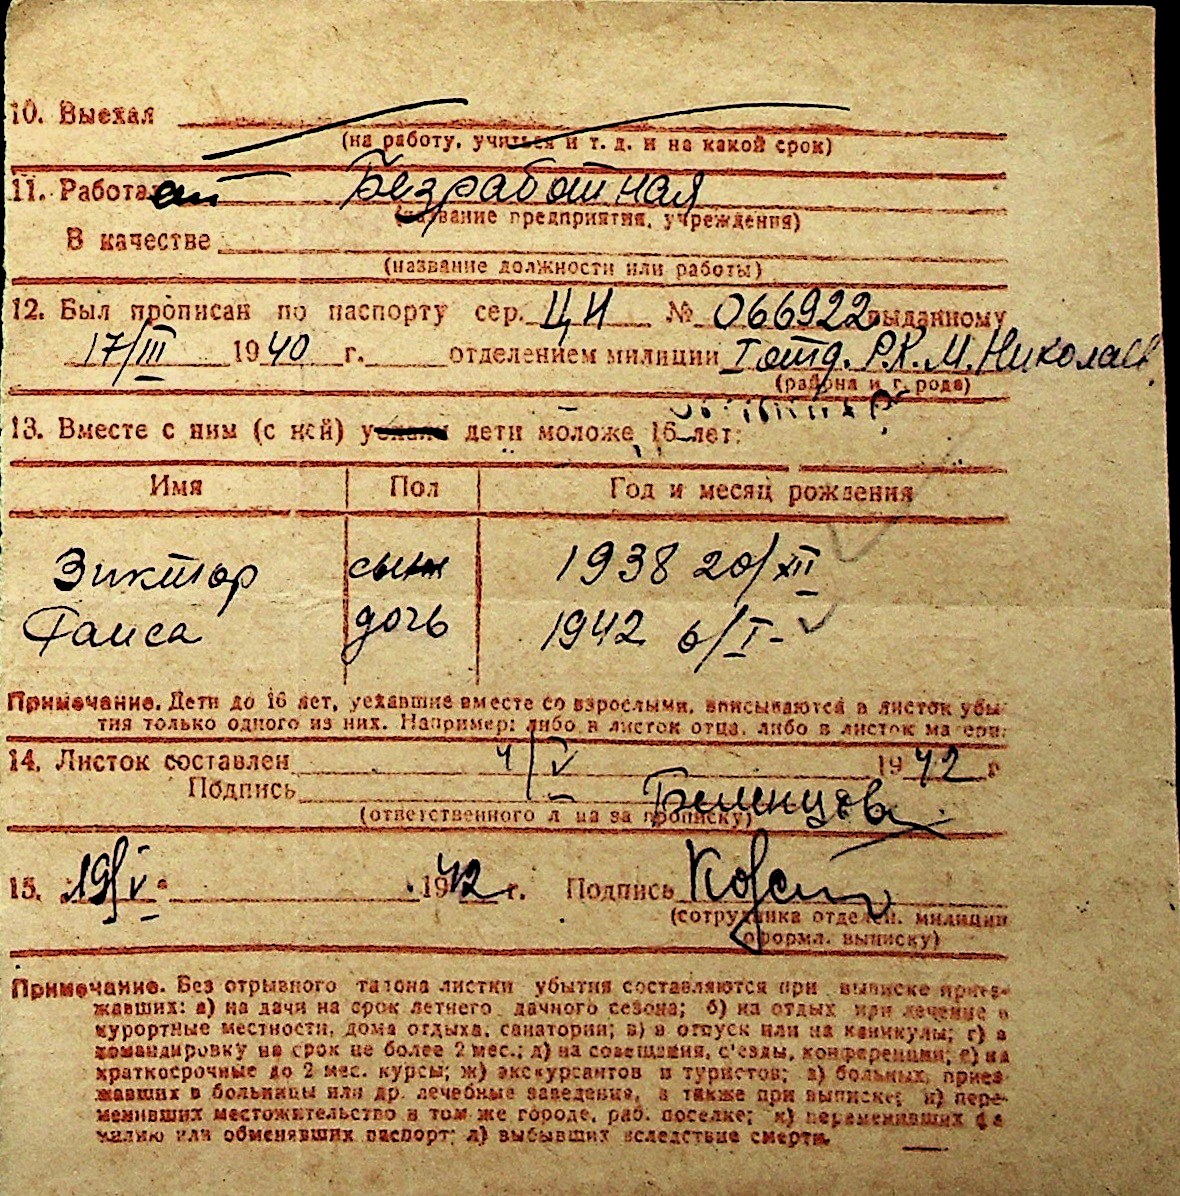 10. Выехал
(на работу, учиться и т. д. и на какой срок)
11. Работает Безработная
(название предприятия, учреждения)
В качестве
(название должности или работы)
12. Был прописан по паспорту сер. ЦИ № 066922 выданному
17/III 1940 г. отделением милиции I отд. Р.К.М. Николаев
(района и города)
13. Вместе с ним (с ней) уехали дети моложе 16 лет:
Имя Пол Год и месяц рождения
Виктор сын 1938 20/XII
Раиса дочь 1942 6/I-
Примечание. Дети до 16 лет, уехавшие вместе со взрослыми, вписываются в листок убы-
тия только одного из них. Например: либо в листок отца, либо в листок матери.
14. Листок составлен 4/V 1942 г
Подпись
(ответственного лица за прописку)
15. 19/V 1942 г. Подпись
(сотрудника отделен. милиции
оформл. выписку)
Примечание. Без отрывного талона листки убытия составляются при выписке приез-
жавших: а) на дачи на срок летнего дачного сезона; б) на отдых или лечение в
курортные местности, дома отдыха, санатории; в) в отпуск или на каникулы; г) в
командировку на срок не более 2 мес.; д) на совещания, с'езды, конференции; е) на
краткосрочные до 2 мес. курсы; ж) экскурсантов и туристов; з) больных, приез-
жавших в больницы или др. лечебные заведения, а также при выписке: и) пере-
менивших местожительство в том же городе, раб. поселке; к) переменивших фа
милию или обменявших паспорт; л) выбывших вследствие смерти.